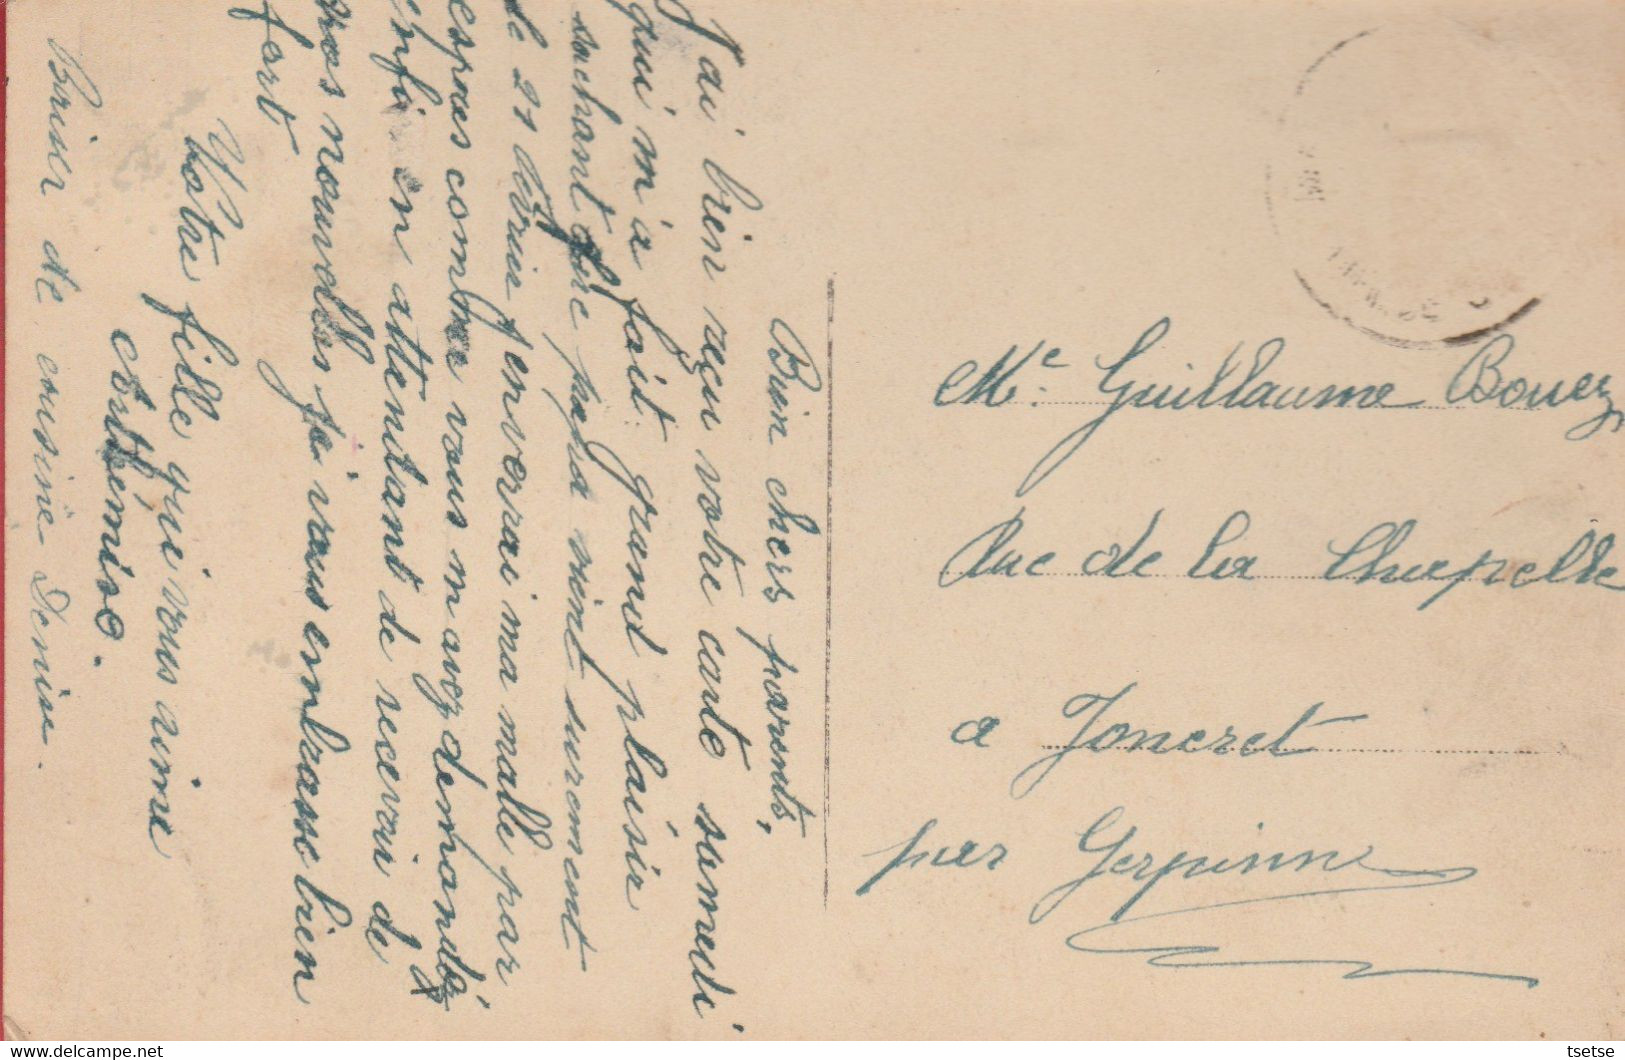 Bien chers parents,
J'ai bien reçu votre carte sameudi
qui m'a fait grand plaisir
sachant que papa vint surement
le 21 février j'enverrai ma malle par
express comme vous m'avez demandéz
enfin en attendant de recevoir de
vos nouvelles je vous embrasse bien
fort
Votre fille qui vous aime
Artémise.
Baiser de cousine Denise.
Me. Guillaume Bouez
Rue de la Chapelle
a Joncret
par Gerpinne
delcampe.net
tsetse